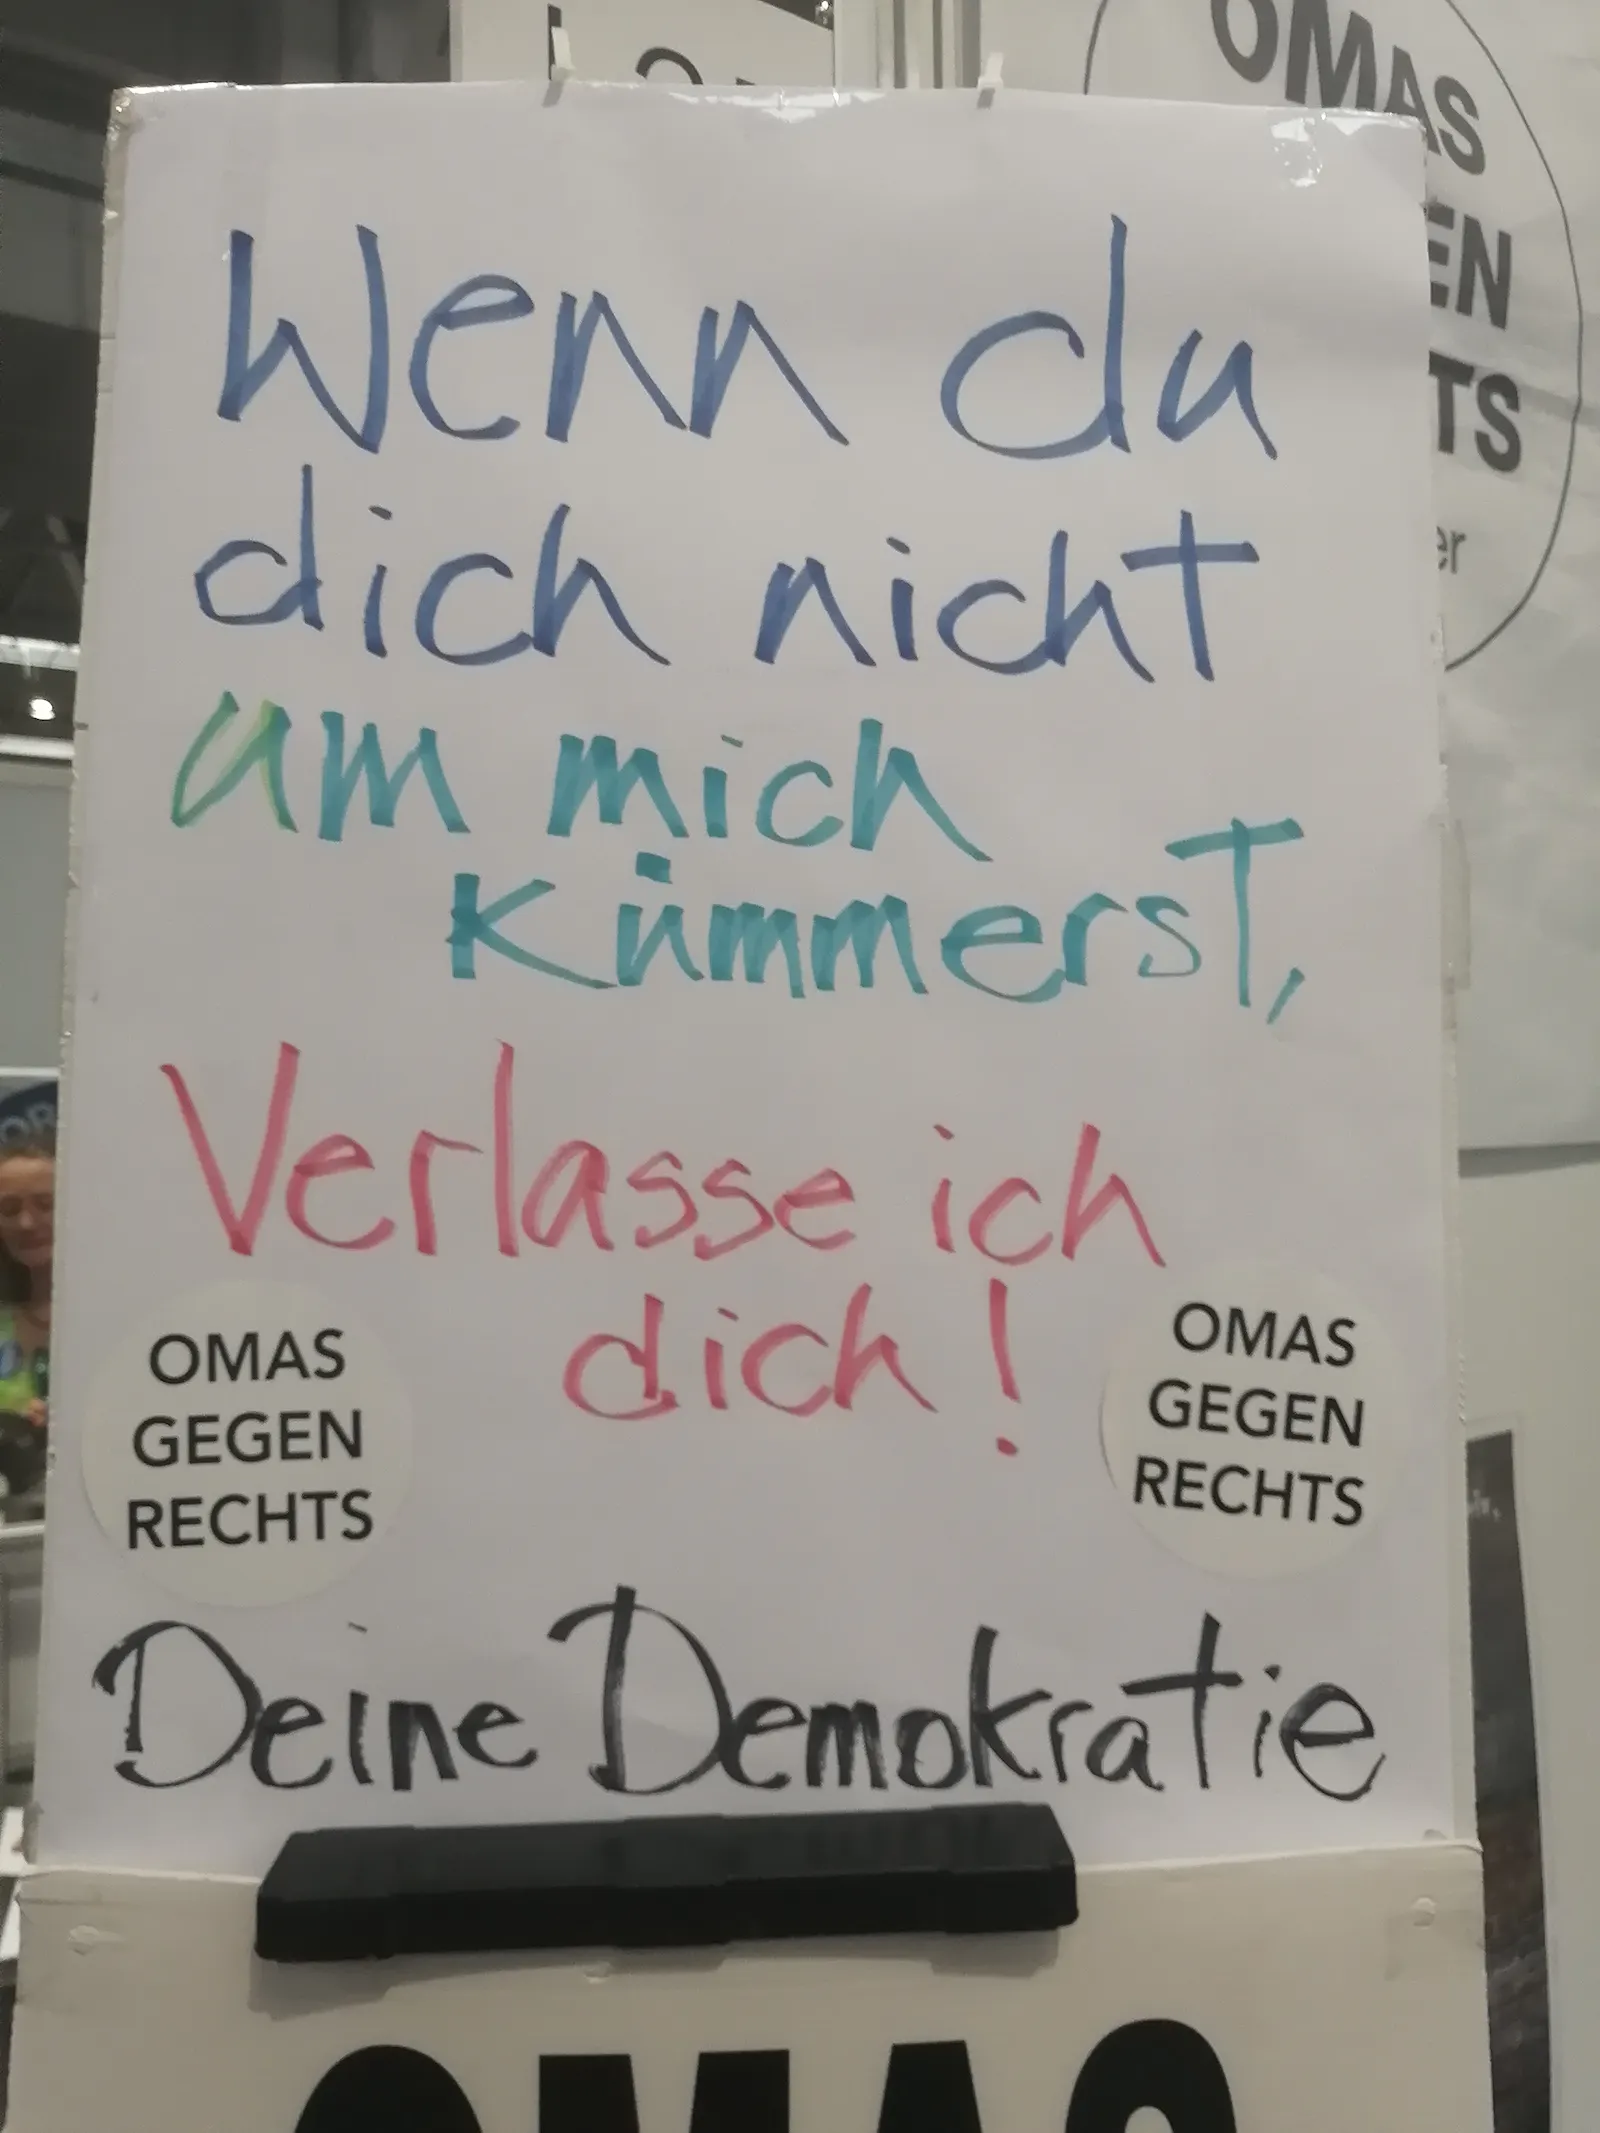 OMAS
Wenn du
dich nicht
um mich
kümmerst,
Verlasse ich
dich!
OMAS
GEGEN
RECHTS
OMAS
GEGEN
RECHTS
Deine Demokratie
OMAS